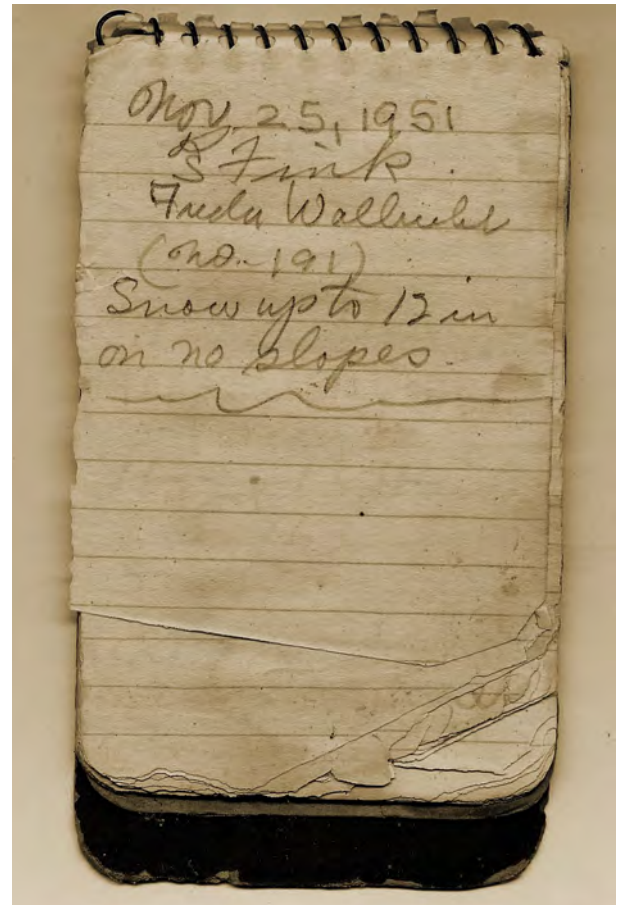 Nov. 25, 1951
S Fink.
Freda Walbrecht
(no. 191)
Snow up to 12 in
on no slopes.